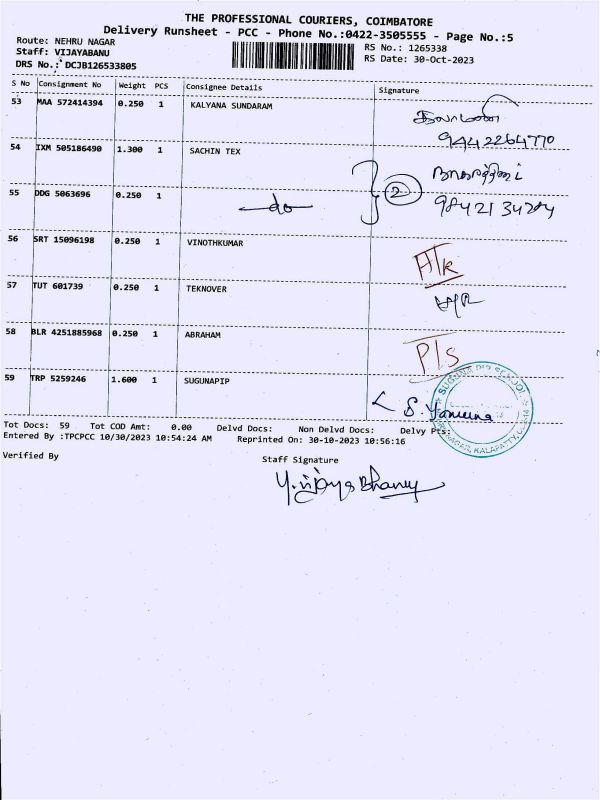 THE PROFESSIONAL COURIERS, COIMBATORE
Delivery Runsheet - PCC - Phone No.:0422-3505555 - Page No.:5
Route: NEHRU NAGAR RS No.: 1265338
Staff: VIJAYABANU RS Date: 30-Oct-2023
DRS No.: DCJB126533805
S No Consignment No Weight PCS Consignee Details Signature
53 MAA 572414394 0.250 1 KALYANA SUNDARAM
9442264770
54 IXM 505186490 1.300 1 SACHIN TEX
55 DDG 5063696 0.250 1 do 2
56 SRT 15096198 0.250 1 VINOTHKUMAR
57 TUT 601739 0.250 1 TEKNOVER
58 BLR 4251885968 0.250 1 ABRAHAM
P/S
59 TRP 5259246 1.600 1 SUGUNAPIP
SUGUNA PIP SCHOOL
NAGAR, KALAPATTY,
Tot Docs: 59 Tot COD Amt: 0.00 Delvd Docs: Non Delvd Docs: Delvy Pts:
Entered By :TPCPCC 10/30/2023 10:54:24 AM Reprinted On: 30-10-2023 10:56:16
Verified By Staff Signature